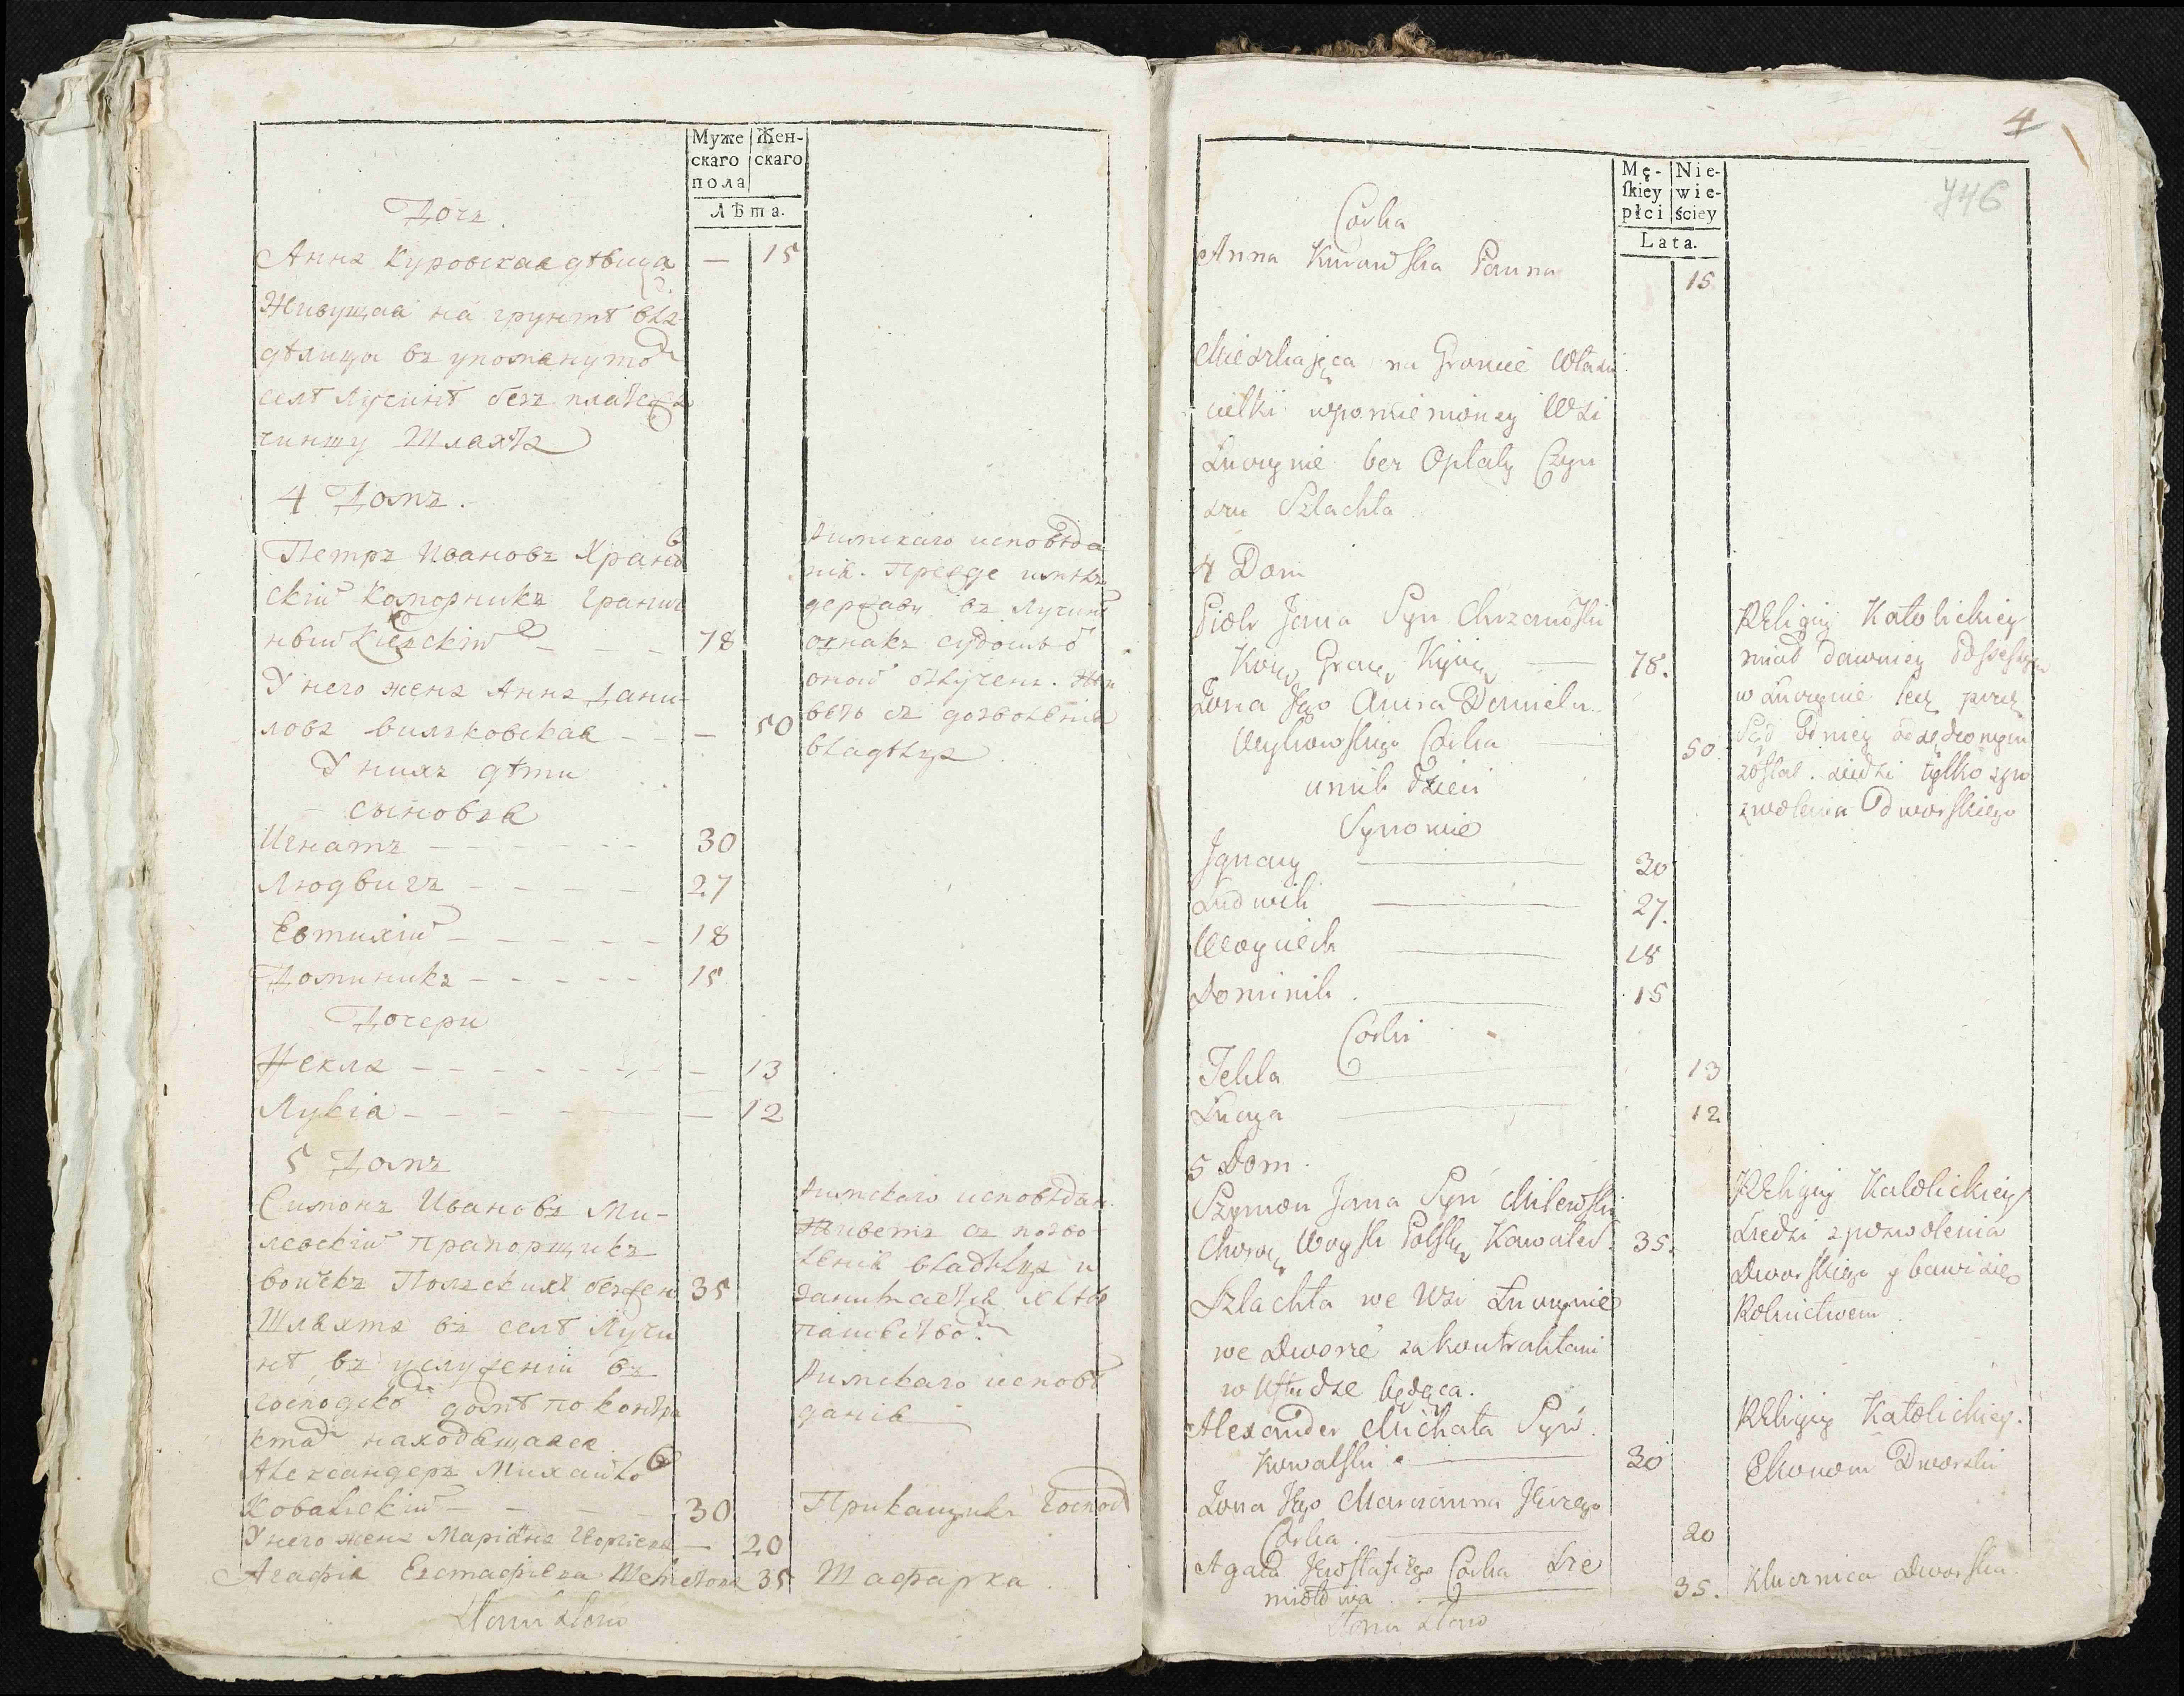 Муже
скаго
пола
Жен-
скаго
Лѣта.
Дочь
Анна Куровская дѣвица — 15
Живущая на грунтѣ вла
дѣлица въ упомянутой
селѣ Лучинѣ безъ платежа
чиншу Шляхта
4 Домъ.
Петръ Ивановъ Хранов
скій Коморникъ Гранич
ный Кіевскій - - - 78
У него жена Анна Дани-
лова вильковская - - - 50
У нихъ дѣти
сыновья
Игнатъ - - - - 30
Людвигъ - - - - 27
Евтихій - - - - 18
Доминикъ - - - - 15
Дочери
Текла - - - - - 13
Луція - - - - — 12
5 Домъ
Симонъ Ивановъ Ми-
левскій Прапорщикъ
войскъ Польскихъ безжен 35
Шляхта въ селѣ Лучи
нѣ, въ услуженіи въ
господской домѣ по контра
ктам находящаяся
Александеръ Михайлов
Ковальскій - - - 30
У него жена Маріана — 20
Агафія Евстафіева 35
Римскаго исповѣда
нія. Прежде имѣлъ
державу въ Лучинѣ
однакъ судомъ о
оной отлученъ. Жи
ветъ съ дозволенія
владѣльца
Римскаго исповѣдан.
Живетъ съ позво
ленія владѣльца и
занимается хлѣбо
пашеством
Римскаго исповѣ
данія
Прикащикъ Господ
Шафарка
Mę-
skiey
płci
Nie-
wie-
ściey
Lata.
4
746
Corka
Anna Kurowska Panna 15
Mieszkająca na Groncie Właści
cielki wpomienioney Wsi
Łuczynie bez Opłaty Czyn
szu Szlachta
4 Dom
Piotr Jana Syn Chrzanowski
Kom͡ Gran͡ Kijow͡ — 78.
Żona Jego Anna Daniela
Wylkowskiego Corka — 50.
u nich dzieci
Synowie
Ignacy — 30
Ludwik — 27.
Woyciech — 18
Dominik — 15
Corki
Tekla — 13
Łucya — 12
5 Dom.
Szymon Jana Syn Milewski
Chorąż Woysk Polsk Kawaler. 35.
Szlachta we Wsi Łuczynie
we Dworze za kontraktami
w Usłudze będąca.
Alexander Michała Syn
Kowalski — 30
Żona Jego Maryanna Jerzego
Corka — 20
Agata Jewstafiego Corka Sze
miotowa 35.
Religij Katolickiey
miał dawniey Possessyą
w Łuczynie lecz przez
Sąd od niey odsądzonym
został. siedzi tylko z po
zwolenia Dworskiego
Religij Katolickiey
siedzi z pozwolenia
Dworskiego y bawi się
Rolnictwem
Religij Katolickiey.
Ekonom Dworski
Klucznica Dworska